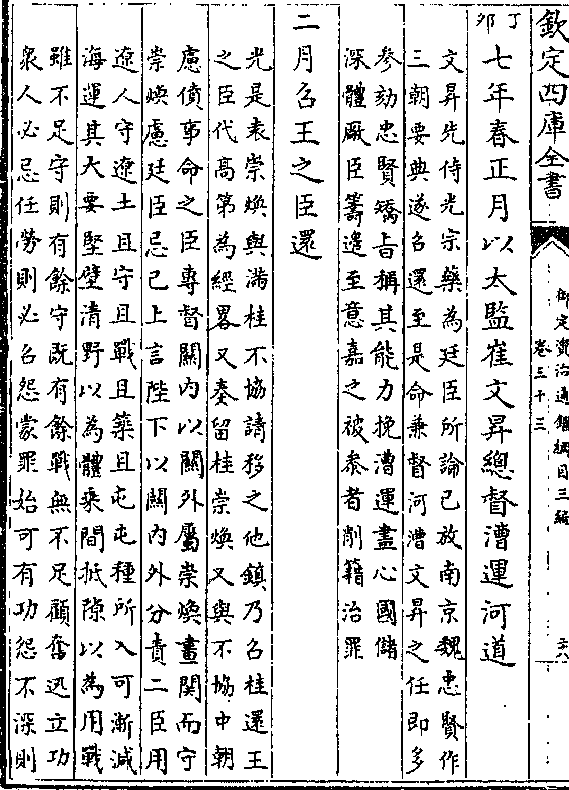 欽定四庫全書
御定資治通鑑綱目三編
卷三十三
丁卯
七年春正月以太監崔文昇總督漕運河道
文昇先侍光宗藥為廷臣所論已放南京魏忠賢作
三朝要典遂召還至是命兼督河漕文昇之任即多
參劾忠賢矯旨稱其能力挽漕運盡心國儲
深體廠臣籌邊至意嘉之被參者削籍治罪
二月召王之臣還
先是袁崇煥與滿桂不協請移之他鎮乃召桂還王
之臣代髙第為經畧又奏留桂崇煥又與不協中朝
慮僨事命之臣專督闗内以闗外屬崇煥畫闗而守
崇煥慮廷臣忌己上言陛下以闗内外分責二臣用
遼人守遼土且守且戰且築且屯屯種所入可漸減
海運其大要堅壁清野以為體乘間抵隙以為用戰
雖不足守則有餘守既有餘戰無不足顧奮迅立功
衆人必忌任勞則必召怨蒙罪始可有功怨不深則